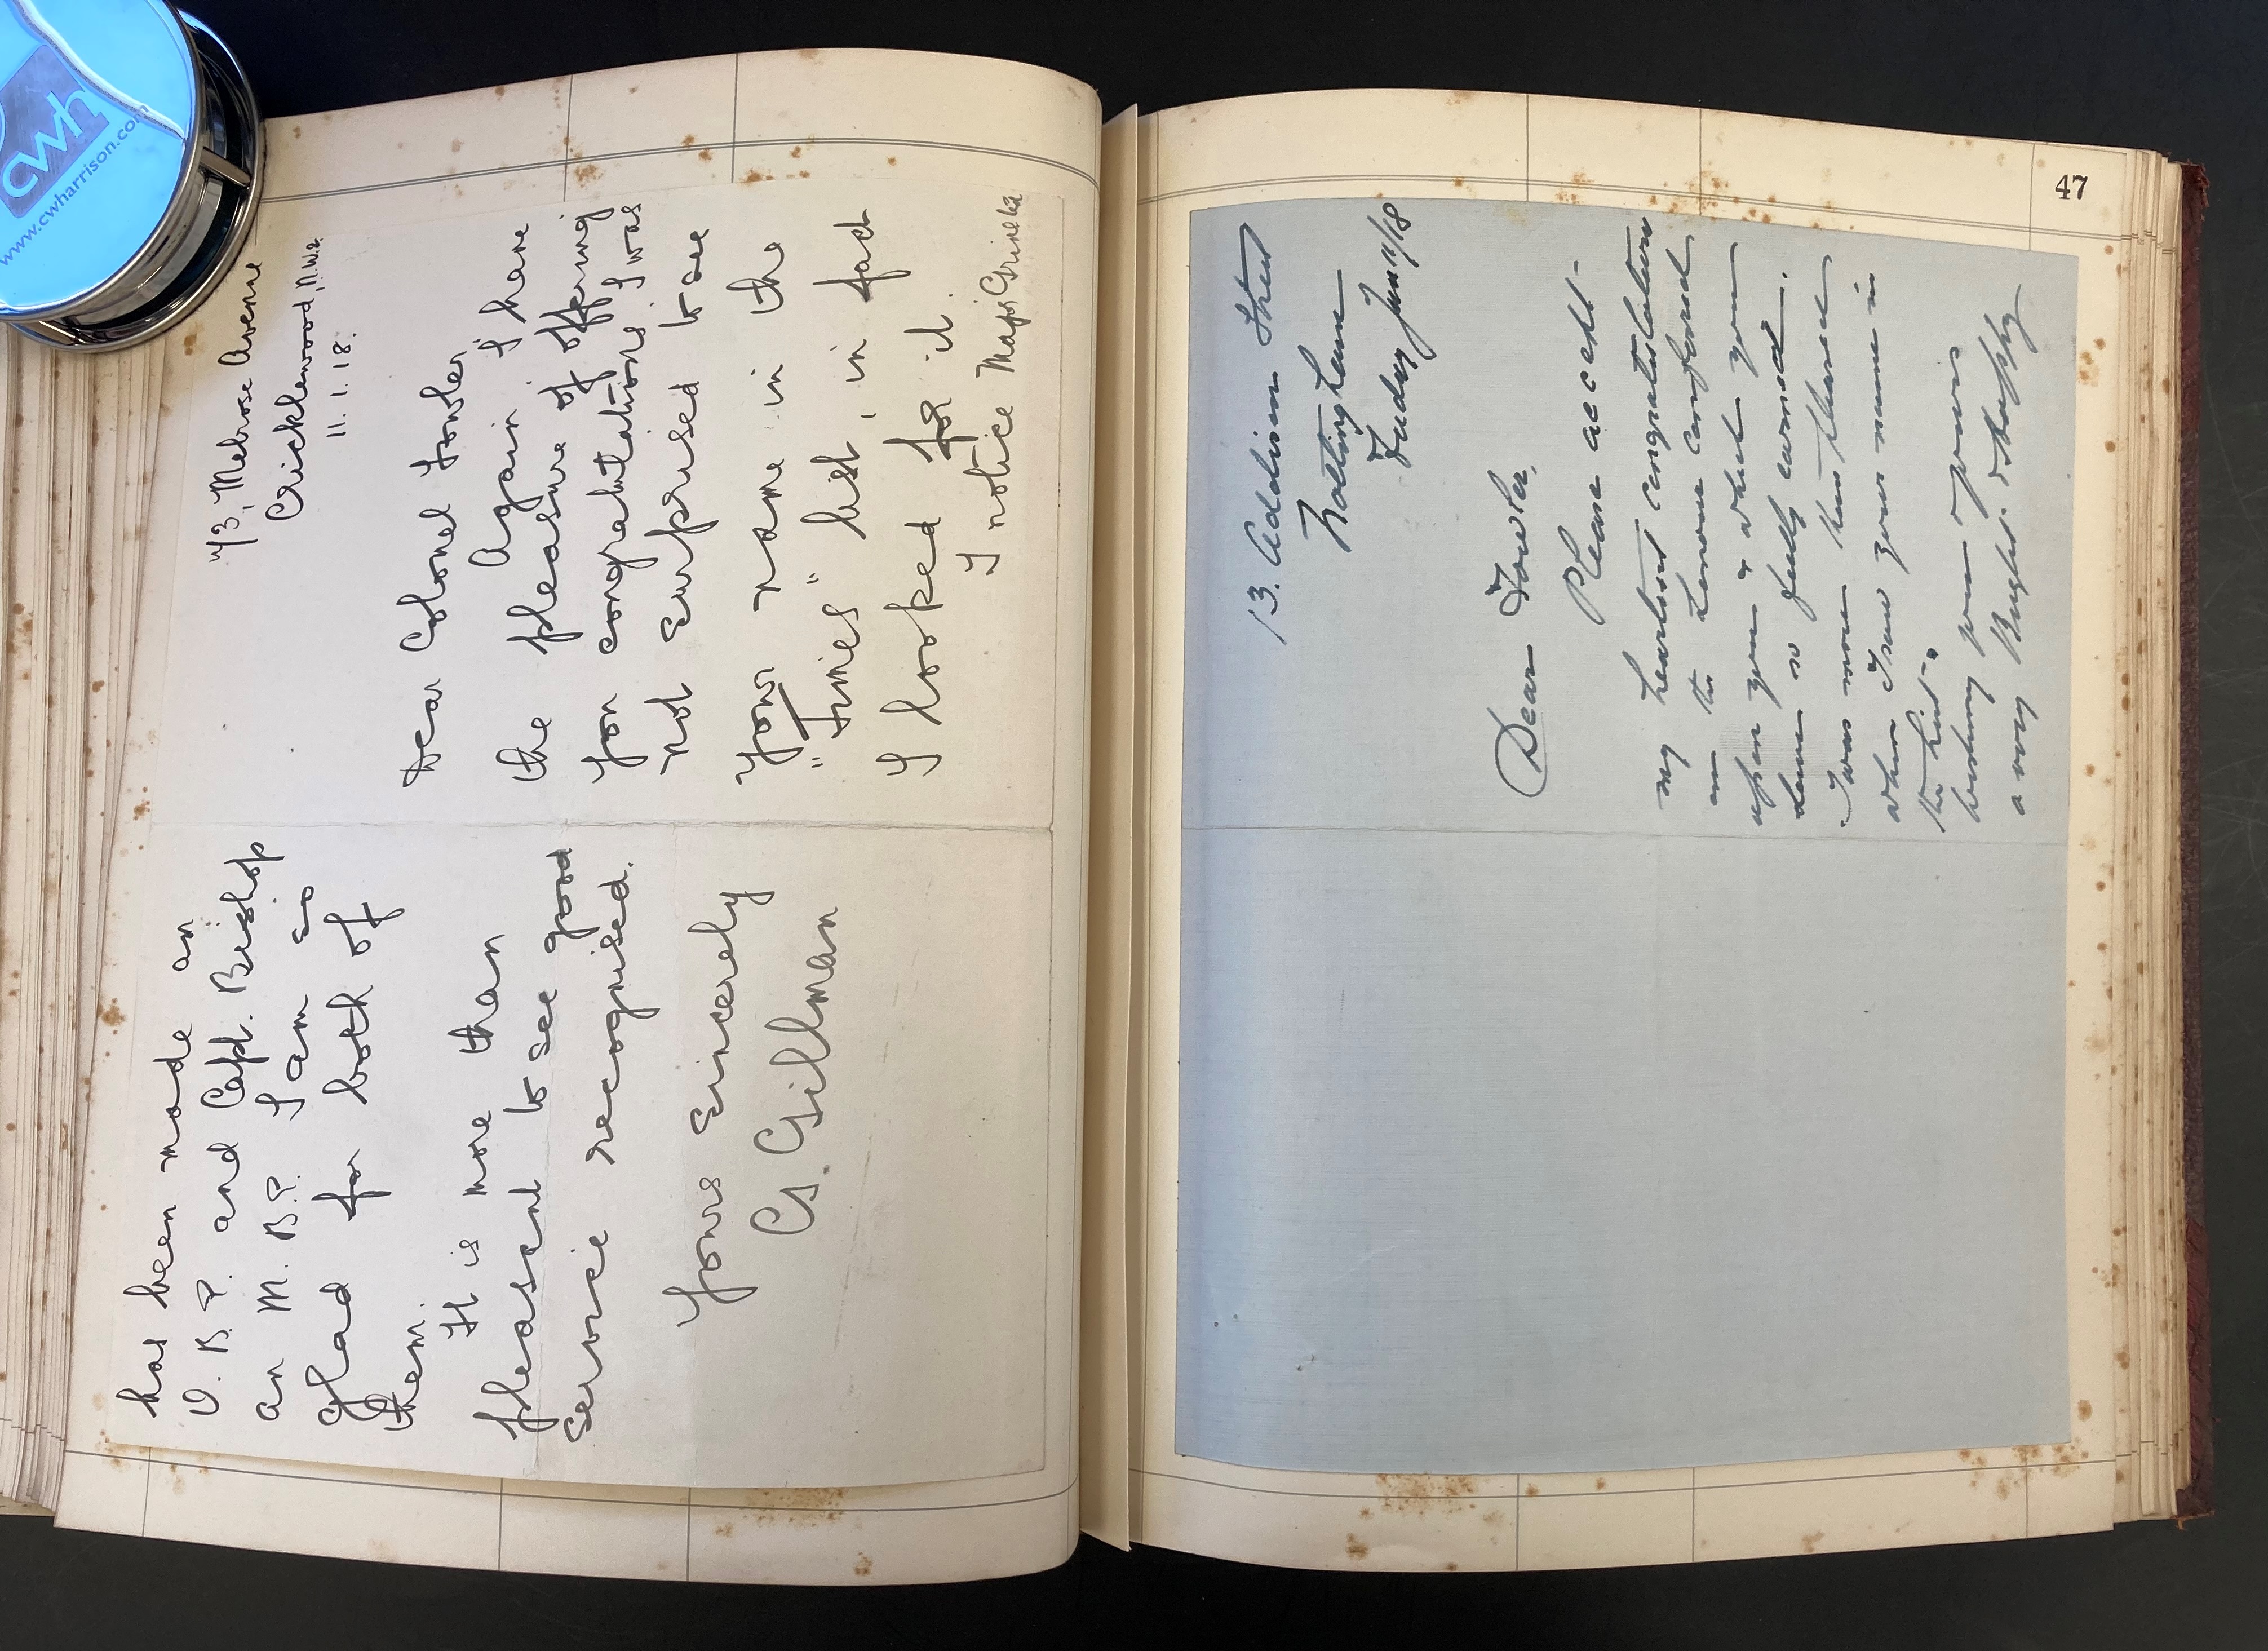 cwh
www.cwharrison.com
43, Melrose Avenue
Cricklewood, N.W.2.
11. 1. 18.
Dear Colonel Fowler
Again I have
the pleasure of offering
you congratulations. I was
not surprised to see
your name in the
"Times" list, in fact
I looked for it.
I notice Major
has been made an
O. B. E. and Capt. Bishop
an M. B. E. I am so
glad for both of
them.
It is more than
pleasant to see good
service recognised.
Yours sincerely
G. Gillman
47
13. Addison Street
Nottingham
Friday Jan 11/18
Dear Fowler,
Please accept
my heartiest congratulations
on the honour conferred
upon you & which you
have so fully earned.
I was more than pleased
when I saw your name in
the list.
Wishing you & yours
a very Bright & Happy